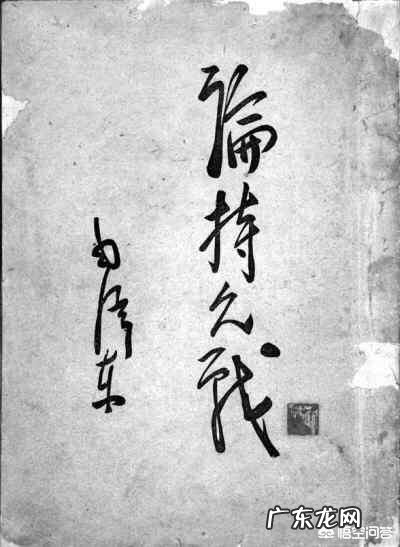 論持久戰
毛澤东
广东龙网
悟空问答